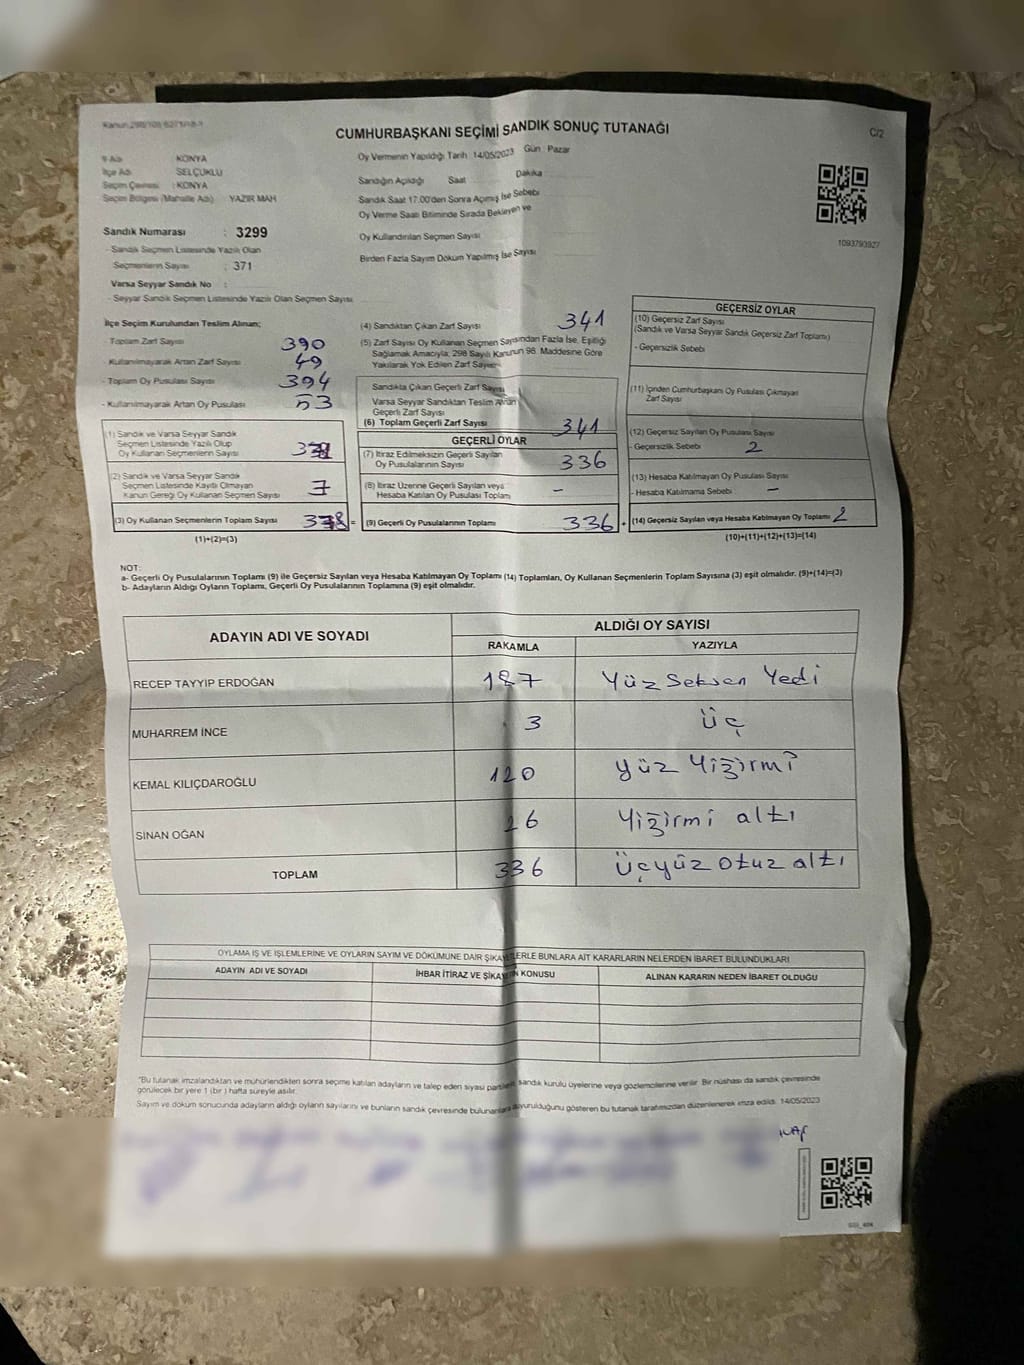 CUMHURBAŞKANI SEÇİMİ SANDIK SONUÇ TUTANAĞI
C/2
İl Adı KONYA
İlçe Adı SELÇUKLU
Seçim Çevresi : KONYA
Seçim Bölgesi (Mahalle Adı) YAZIR MAH
Sandık Numarası : 3299
- Sandık Seçmen Listesinde Yazılı Olan
Seçmenlerin Sayısı : 371
Varsa Seyyar Sandık No :
- Seyyar Sandık Seçmen Listesinde Yazılı Olan Seçmen Sayısı
Oy Vermenin Yapıldığı Tarih 14/05/2023 Gün : Pazar
Sandığın Açıldığı Saat Dakika
Sandık Saat 17.00'den Sonra Açımış İse Sebebi
Oy Verme Saati Bitiminde Sırada Bekleyen ve
Oy Kullandırılan Seçmen Sayısı
Birden Fazla Sayım Döküm Yapılmış İse Sayısı
1093793927
İlçe Seçim Kurulundan Teslim Alınan;
- Toplam Zarf Sayısı 390
- Kullanılmayarak Artan Zarf Sayısı 49
- Toplam Oy Pusulası Sayısı 394
- Kullanılmayarak Artan Oy Pusulası 53
(1) Sandık ve Varsa Seyyar Sandık
Seçmen Listesinde Yazılı Olup
Oy Kullanan Seçmenlerin Sayısı
(2) Sandık ve Varsa Seyyar Sandık
Seçmen Listesinde Kayıtlı Olmayan
Kanun Gereği Oy Kullanan Seçmen Sayısı 7
(3) Oy Kullanan Seçmenlerin Toplam Sayısı =
(1)+(2)=(3)
(4) Sandıktan Çıkan Zarf Sayısı 341
(5) Zarf Sayısı Oy Kullanan Seçmen Sayısından Fazla İse, Eşitliği
Sağlamak Amacıyla; 298 Sayılı Kanunun 98. Maddesine Göre
Yakılarak Yok Edilen Zarf Sayısı
Sandıkta Çıkan Geçerli Zarf Sayısı
Varsa Seyyar Sandıktan Teslim Alınan
Geçerli Zarf Sayısı
(6) Toplam Geçerli Zarf Sayısı 341
GEÇERLİ OYLAR
(7) İtiraz Edilmeksizin Geçerli Sayılan
Oy Pusulalarının Sayısı 336
(8) İtiraz Üzerine Geçerli Sayılan veya
Hesaba Katılan Oy Pusulası Toplam –
(9) Geçerli Oy Pusulalarının Toplamı 336 +
GEÇERSİZ OYLAR
(10) Geçersiz Zarf Sayısı
(Sandık ve Varsa Seyyar Sandık Geçersiz Zarf Toplamı)
- Geçersizlik Sebebi
(11) İçinden Cumhurbaşkanı Oy Pusulası Çıkmayan
Zarf Sayısı
(12) Geçersiz Sayılan Oy Pusulası Sayısı
- Geçersizlik Sebebi 2
(13) Hesaba Katılmayan Oy Pusulası Sayısı
- Hesaba Katılmama Sebebi –
(14) Geçersiz Sayılan veya Hesaba Katılmayan Oy Toplamı 2
(10)+(11)+(12)+(13)=(14)
NOT:
a- Geçerli Oy Pusulalarının Toplamı (9) ile Geçersiz Sayılan veya Hesaba Katılmayan Oy Toplamı (14) Toplamları, Oy Kullanan Seçmenlerin Toplam Sayısına (3) eşit olmalıdır. (9)+(14)=(3)
b- Adayların Aldığı Oyların Toplamı, Geçerli Oy Pusulalarının Toplamına (9) eşit olmalıdır.
ADAYIN ADI VE SOYADI ALDIĞI OY SAYISI
RAKAMLA YAZIYLA
RECEP TAYYIP ERDOĞAN 187 Yüz Seksen Yedi
MUHARREM İNCE 3 Üç
KEMAL KILIÇDAROĞLU 120 Yüz Yiğirmi
SİNAN OĞAN 26 Yiğirmi altı
TOPLAM 336 Üçyüz otuz altı
OYLAMA İŞ VE İŞLEMLERİNE VE OYLARIN SAYIM VE DÖKÜMÜNE DAİR ŞİKAYETLERLE BUNLARA AİT KARARLARIN NELERDEN İBARET BULUNDUKLARI
ADAYIN ADI VE SOYADI İHBAR İTİRAZ VE ŞİKAYETİN KONUSU ALINAN KARARIN NEDEN İBARET OLDUĞU
"Bu tutanak imzalandıktan ve mühürlendikten sonra seçime katılan adayların ve talep eden siyasi partilerin sandık kurulu üyelerine veya gözlemcilerine verilir. Bir nüshası da sandık çevresinde
görülecek bir yere 1 (bir) hafta süreyle asılır.
Sayım ve döküm sonucunda adayların aldığı oyların sayılarını ve bunların sandık çevresinde bulunanlara duyurulduğunu gösteren bu tutanak tarafımızdan düzenlenerek imza edildi. 14/05/2023